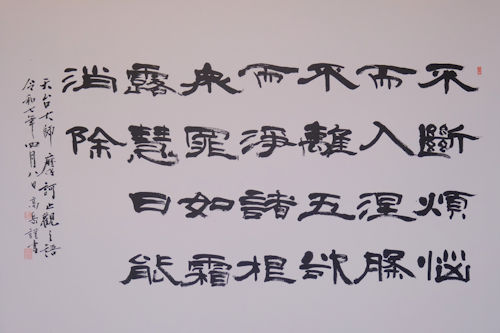 不斷煩惱
而入涅槃
不離五欲
而淨諸根
衆罪如霜
露慧日能
消除
天台大師摩訶止觀之語
令和七年四月八日謹書